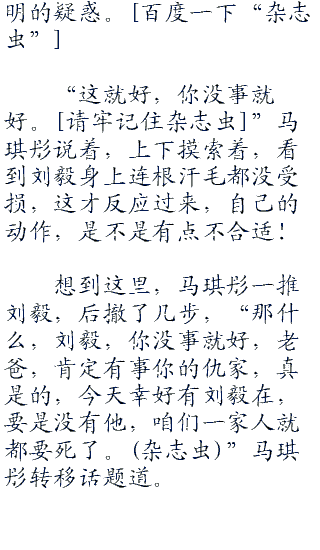 明的疑惑。[百度一下“杂志
虫”]
“这就好，你没事就
好。[请牢记住杂志虫]”马
琪彤说着，上下摸索着，看
到刘毅身上连根汗毛都没受
损，这才反应过来，自己的
动作，是不是有点不合适！
想到这里，马琪彤一推
刘毅，后撤了几步，“那什
么，刘毅，你没事就好，老
爸，肯定有事你的仇家，真
是的，今天幸好有刘毅在，
要是没有他，咱们一家人就
都要死了。(杂志虫)”马琪
彤转移话题道。